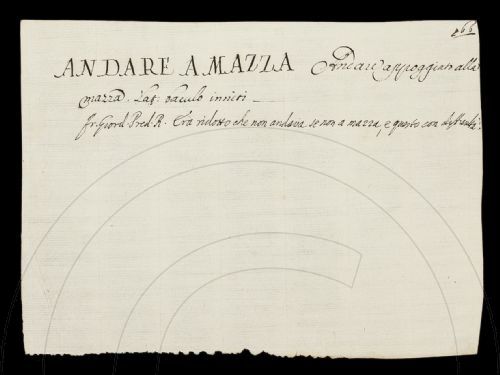 165
ANDARE A MAZZA Andare appoggiato alla
mazza. Lat. baculo inniti
Fr. Giord. Pred. R. Era ridotto che non andava se non a mazza, e questo con difficultà.